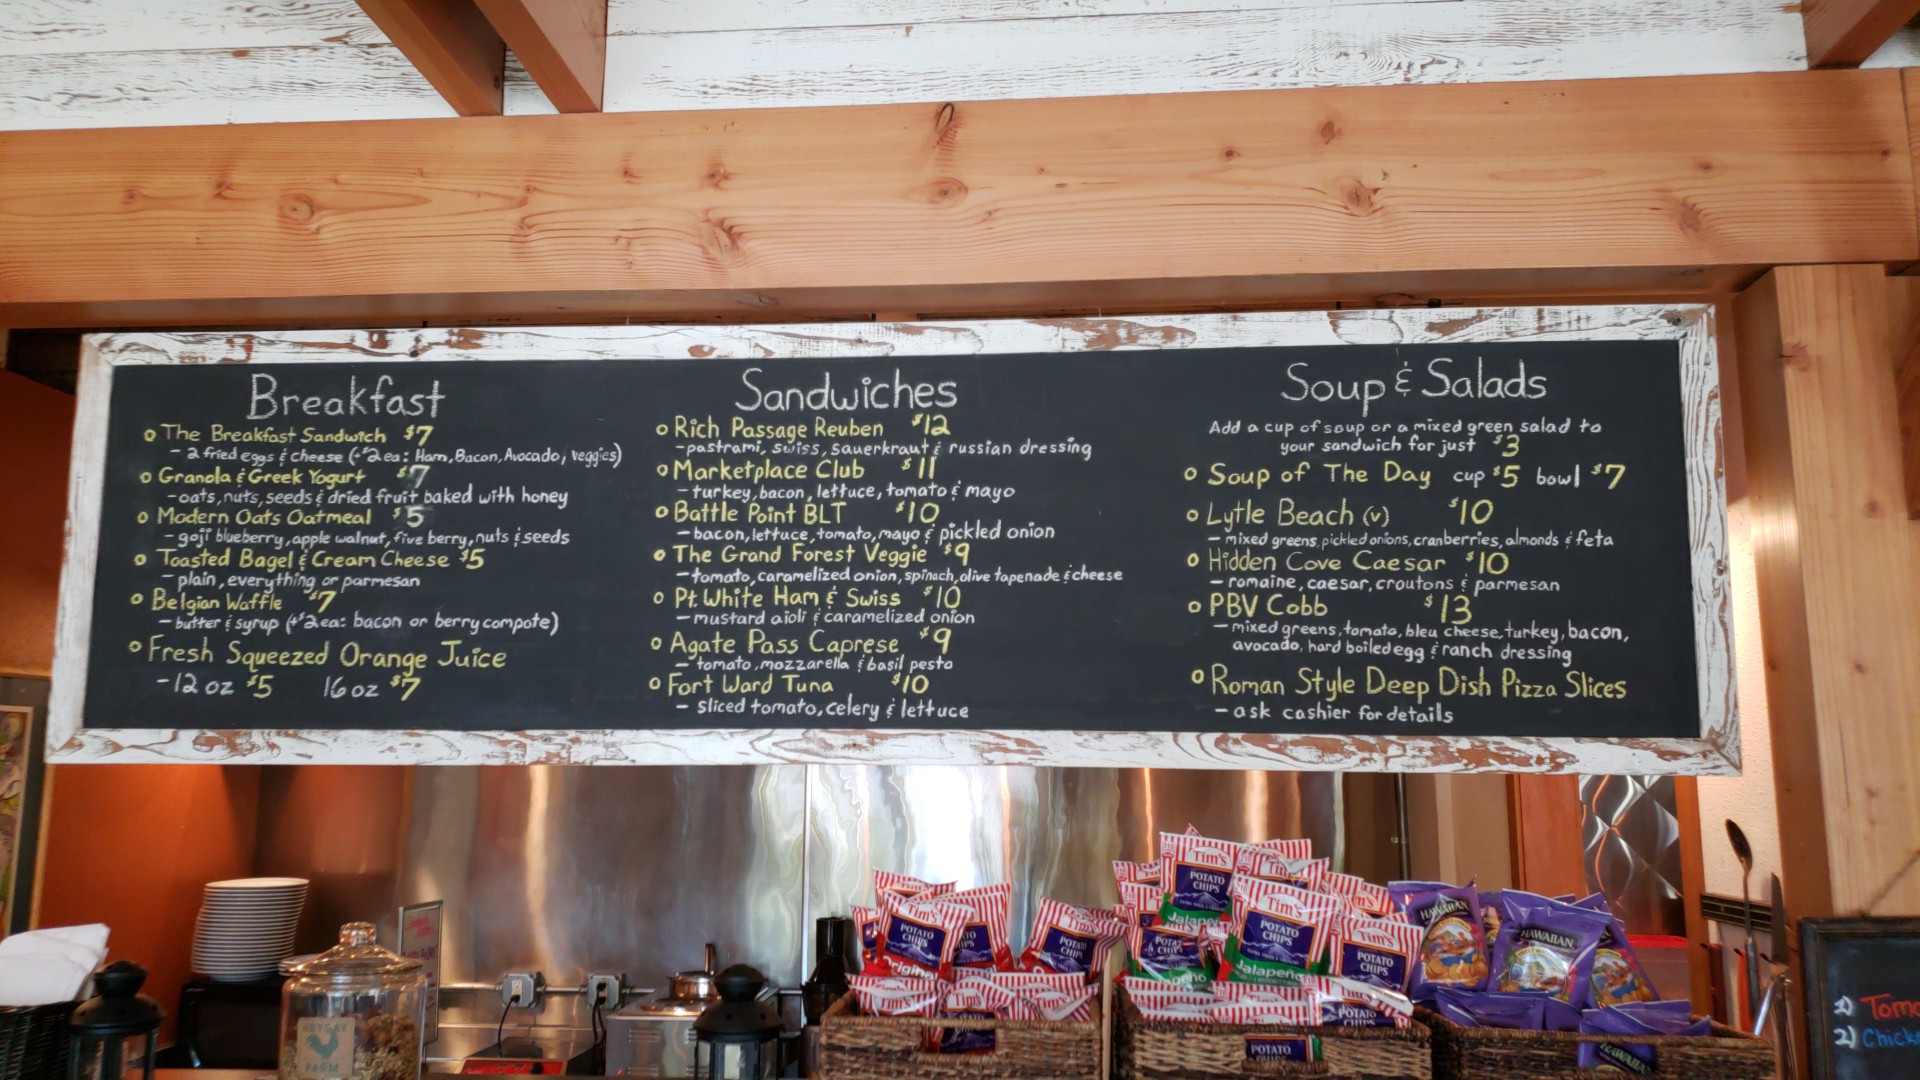 Breakfast
The Breakfast Sandwich $7
- 2 fried eggs & cheese (+$2ea: Ham, Bacon, Avocado, veggies)
Granola & Greek Yogurt $7
- oats, nuts, seeds & dried fruit baked with honey
Modern Oats Oatmeal $5
- goji blueberry, apple walnut, five berry, nuts & seeds
Toasted Bagel & Cream Cheese $5
- plain, everything or parmesan
Belgian Waffle $7
- butter & syrup (+$2ea: bacon or berry compote)
Fresh Squeezed Orange Juice
- 12 oz $5 16 oz $7
Sandwiches
Rich Passage Reuben $12
- pastrami, swiss, sauerkraut & russian dressing
Marketplace Club $11
- turkey, bacon, lettuce, tomato & mayo
Battle Point BLT $10
- bacon, lettuce, tomato, mayo & pickled onion
The Grand Forest Veggie $9
- tomato, caramelized onion, spinach, olive tapenade & cheese
Pt. White Ham & Swiss $10
- mustard aioli & caramelized onion
Agate Pass Caprese $9
- tomato, mozzarella & basil pesto
Fort Ward Tuna $10
- sliced tomato, celery & lettuce
Soup & Salads
Add a cup of soup or a mixed green salad to
your sandwich for just $3
Soup of The Day cup $5 bowl $7
Lytle Beach (v) $10
- mixed greens, pickled onions, cranberries, almonds & feta
Hidden Cove Caesar $10
- romaine, caesar, croutons & parmesan
PBV Cobb $13
- mixed greens, tomato, bleu cheese, turkey, bacon,
avocado, hard boiled egg & ranch dressing
Roman Style Deep Dish Pizza Slices
- ask cashier for details
Tim's
POTATO
CHIPS
Original
Tim's
POTATO
CHIPS
Jalapeno
Tim's
POTATO
CHIPS
Jalapeno
Tim's
POTATO
CHIPS
HAWAIIAN
HAWAIIAN
Tim's
Tim's
Tim's
POTATO
CHIPS
POTATO
HAWAIIAN
FARM
1) Tom
2) Chick